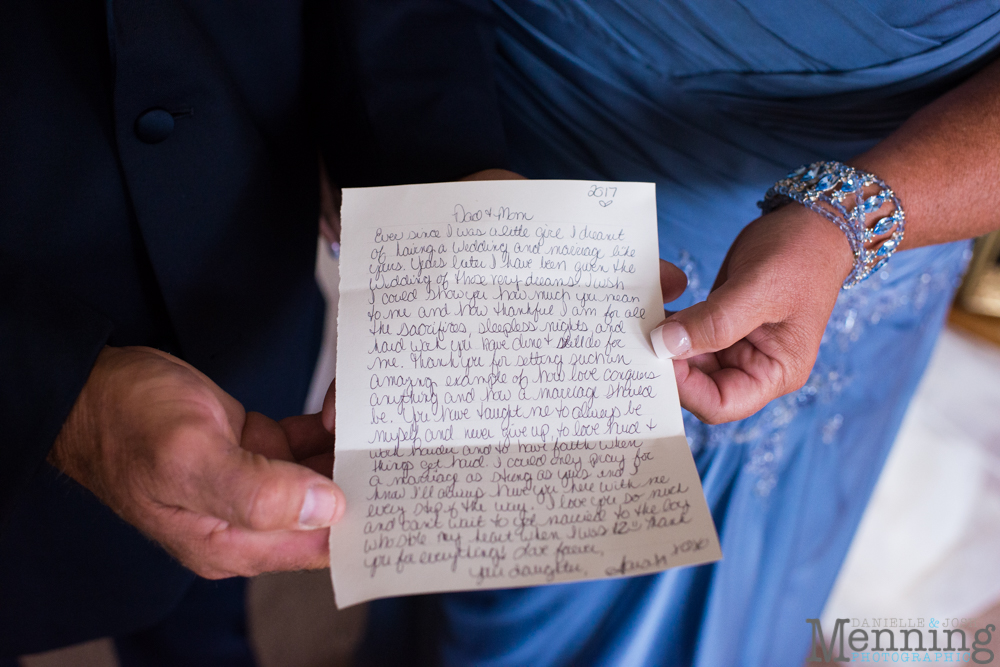 2017
Dad + Mom
Ever since I was a little girl I dreamt
of having a wedding and marriage like
yours. Years later I have been given the
wedding of those very dreams. I wish
I could show you how much you mean
to me and how thankful I am for all
the sacrifices, sleepless nights, and
hard work you have done + still do for
me. Thank you for setting such an
amazing example of how love conquers
anything and how a marriage should
be. You have taught me to always be
myself and never give up, to love hard +
work harder and to have faith when
things get hard. I could only pray for
a marriage as strong as yours and I
know I'll always have you here with me
every step of the way. I love you so much
and can't wait to get married to the boy
who stole my heart when I was 12 Thank
you for everything. Love forever,
your daughter, Sarah xoxo
DANIELLE & JOSH
Menning
PHOTOGRAPHY